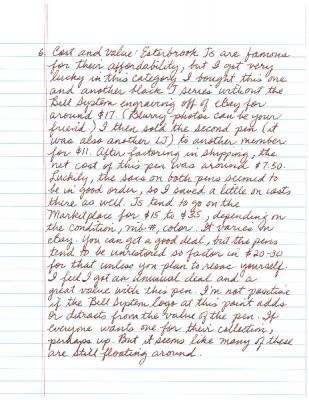 6. Cost and value: Esterbrook Js are famous
for their affordability, but I got very
lucky in this category. I bought this one
and another black J series without the
Bell System engraving off of eBay for
around $17. (Blurry photos can be your
friend.) I then sold the second pen (it
was also another LJ) to another member
for $11. After factoring in shipping, the
net cost of this pen was around $7.50.
Luckily, the sacs on both pens seemed to
be in good order, so I saved a little on costs
there as well. Js tend to go on the
Marketplace for $15 to $35, depending on
the condition, nib #, color. It varies on
eBay. You can get a good deal, but the pens
tend to be unrestored so factor in $20-30
for that unless you plan to resac yourself.
I feel I got an unusual deal and a
great value with this pen. I'm not positive
if the Bell System logo at this point adds
or detracts from the value of the pen. If
everyone wants one for their collection,
perhaps up. But it seems like many of these
are still floating around.